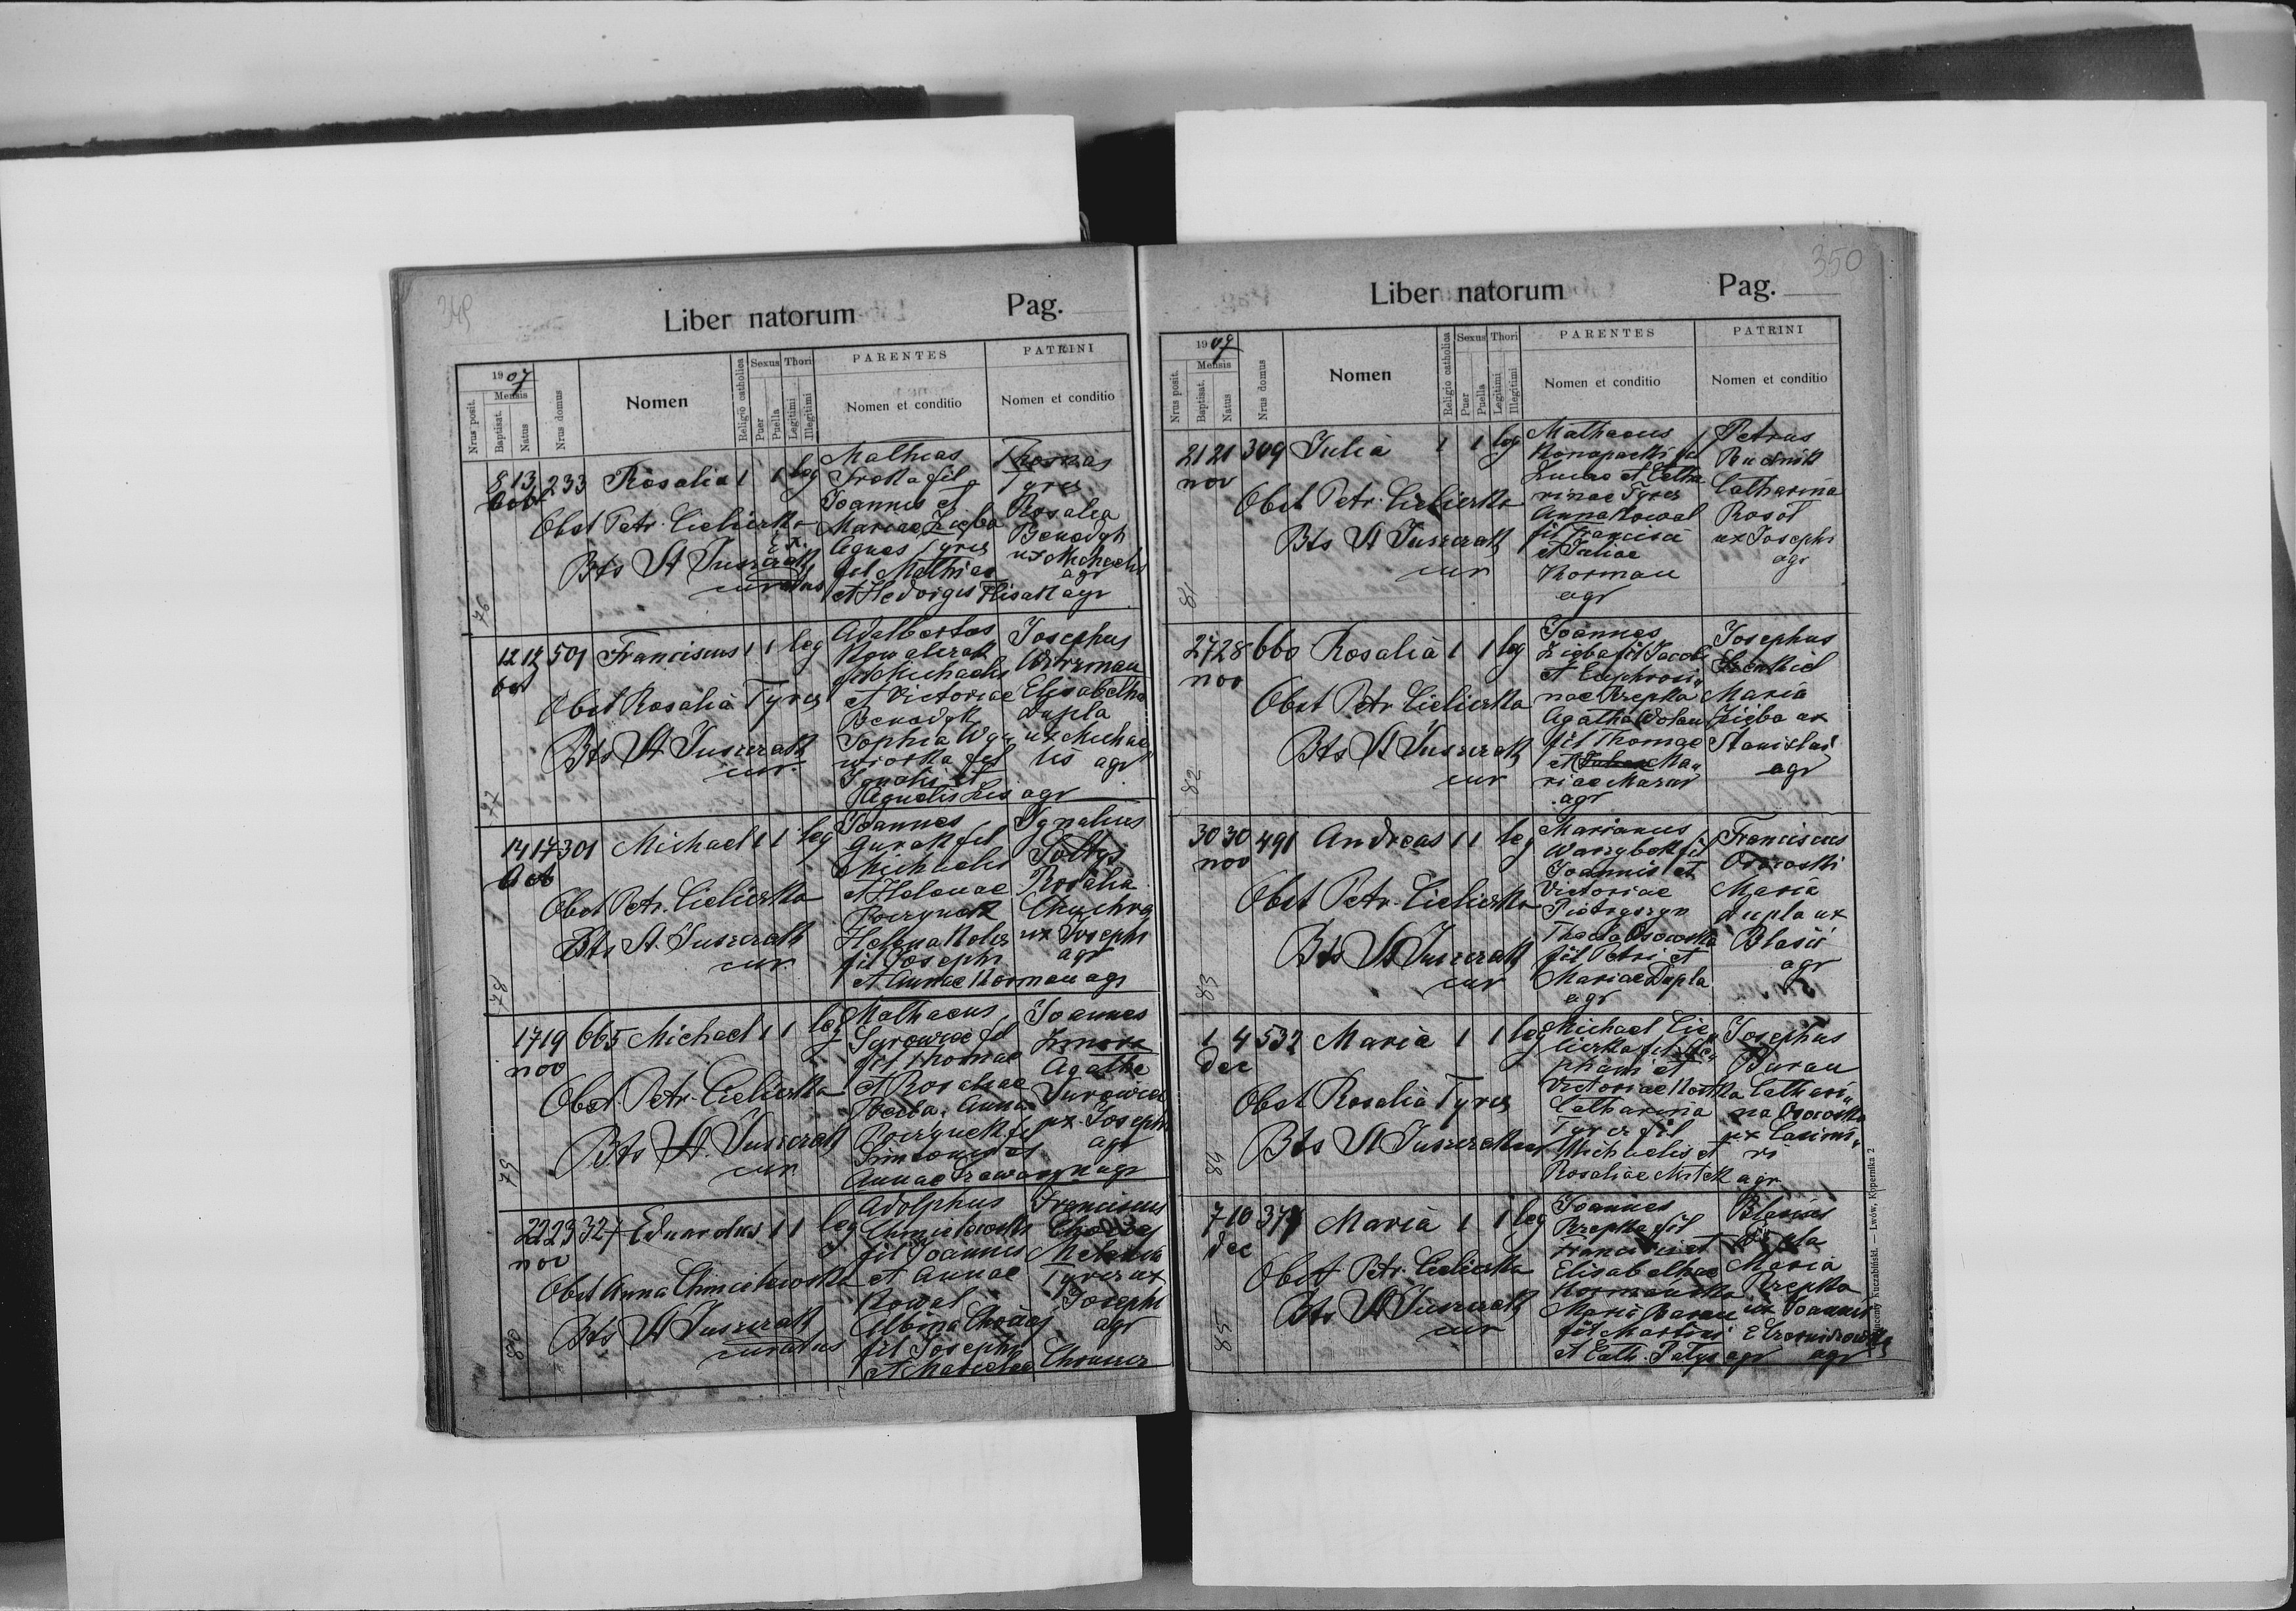 349
Liber natorum Pag.
1907
Mensis
Nrus posit.
Baptisat.
Natus
Nrus domus
Nomen
Religio catholica
Sexus
Puer
Puella
Thori
Legitimi
Illegitimi
PARENTES
Nomen et conditio
PATRINI
Nomen et conditio
76
8 13 233 Rosalia 1 1 leg
Oct
Obst Petr. Cieliczka
Bts St Juszczak
curatus
Mathias
Sroka fil
Joannis et
Mariae Zięba
Agnes Tyrcz
fil Mathiae
et Hedvigis Flisak agr
Thomas
Tyrcz
Rosalia
Benedyk
ux Michaelis
agr
77
12 12 501 Franciscus 1 1 leg
oct
Obst Rosalia Tyrcz
Bts St Juszczak
cur.
Adalbertus
Kowalczak
fil Michaelis
et Victoriae
Benedyk
Sophia
fil
Ignatii et
Agnetis Lis agr
Josephus
Elisabetha
Dupla
ux Michae
lis agr
78
14 17 301 Michael 1 1 leg
Oct
Obst Petr. Cieliczka
Bts St. Juszczak
cur.
Joannes
Gurak fil
Michaelis
et Helenae
Helena
fil Josephi
et Annae Korman agr
Ignatius
Sołtys
Rosalia
ux Josephi
agr
79
17 19 665 Michael 1 1 leg
nov
Obst Petr. Cieliczka
Bts St. Juszczak
cur
Mathaeus
Surowiec fil
fil Thomae
et Rosaliae
Anna
fil
Simeonis et
Annae agr
Joannes
Zmora
Agatha
Surowiec
ux. Josephi
agr
80
22 23 327 Eduardus 1 1 leg
nov
Obst Anna Chmielewska
Bts St Juszczak
curatus
Adolphus
Chmielewski
fil Joannis
et Annae
Kowal
Albina
fil Josephi
et
Franciscus
Melania
Tyrcz ux
Josephi
agr
350
Liber natorum Pag.
1907
Mensis
Nrus posit.
Baptisat.
Natus
Nrus domus
Nomen
Religio catholica
Sexus
Puer
Puella
Thori
Legitimi
Illegitimi
PARENTES
Nomen et conditio
PATRINI
Nomen et conditio
81
21 21 309 Julia 1 1 leg
nov
Obst Petr. Cieliczka
Bts St Juszczak
cur
Mathaeus
Konopacki fil
Lucae et Catha
rinae Tyrcz
Anna Kowal
fil Francisci
et Juliae
Korman
agr
Petrus
Rudnik
Catharina
Rosół
ux Josephi
agr
82
27 28 660 Rosalia 1 1 leg
nov
Obst Petr Cieliczka
Bts St Juszczak
cur
Joannes
Zięba fil Jacobi
et Euphrosi
nae Rzepka
Agatha Wołan
fil Thomae
et Ma
riae Mazur
agr
Josephus
Maria
Zięba ux
Stanislai
agr
83
30 30 491 Andreas 1 1 leg
nov
Obst Petr. Cieliczka
Bts St Juszczak
cur
Marianus
Warzybok fil
Joannis et
Victoriae
Thecla Osowska
fil Petri et
Mariae Dupla
agr
Franciscus
Osowski
Maria
Dupla ux
Blasii
agr
84
1 4 532 Maria 1 1 leg
Dec
Obst Rosalia Tyrcz
Bts St Juszczak cur
Michael Cie
liczka fil Ste
phani et
Victoriae Kostka
Catharina
Tyrcz fil
Michaelis et
Rosaliae Mitek agr.
Josephus
Buran
Cathari
na Osowska
ux Casimi
ri
85
7 10 371 Maria 1 1 leg
dec
Obst Petr. Cieliczka
Bts St Juszczak
cur
Joannes
Rzepka fil
Francisci et
Elisabethae
Kormanska
Maria Baran
fil Martini
et Cath. Patys agr
Blasius
Maria
Rzepka
ux Joannis
agr
Wincenty Kuczabiński. — Lwów, Kopernika 2